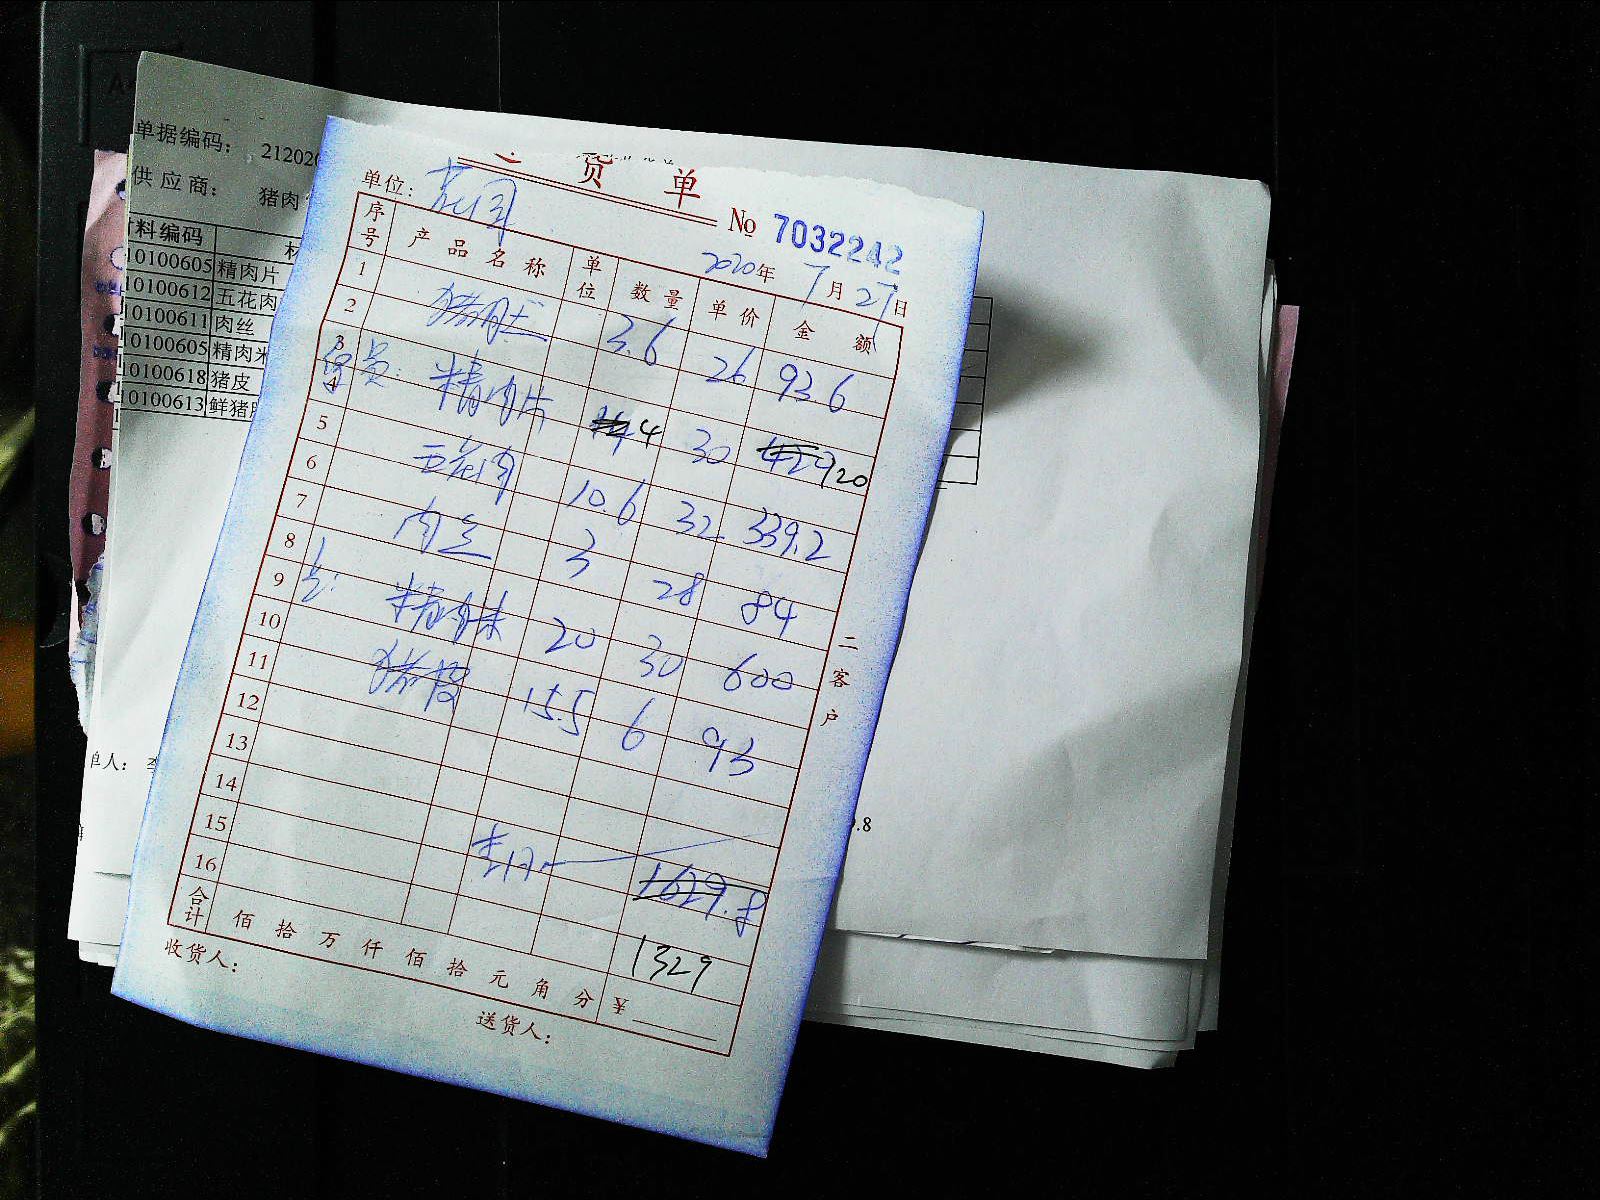 单据编码： 212020
供应商： 猪肉
材料编码
10100605 精肉片
10100612 五花肉
10100611 肉丝
10100605 精肉米
10100618 猪皮
10100613 鲜猪肚
单人： 李
9.8
货单
单位： 花园
№ 7032242
2020年 7月27日
序号 产品名称 单位 数量 单价 金额
1 猪肚 3.6 26 93.6
2
3 精肉片 4 30 120
4
5 五花肉 10.6 32 339.2
6 肉丝 3 28 84
7
8 精肉末 20 30 600
9
10 猪皮 15.5 6 93
11
12
13
14
15 1629.8
16
1329
合计 佰拾万仟佰拾元角分 ¥
收货人：
送货人：
二客户